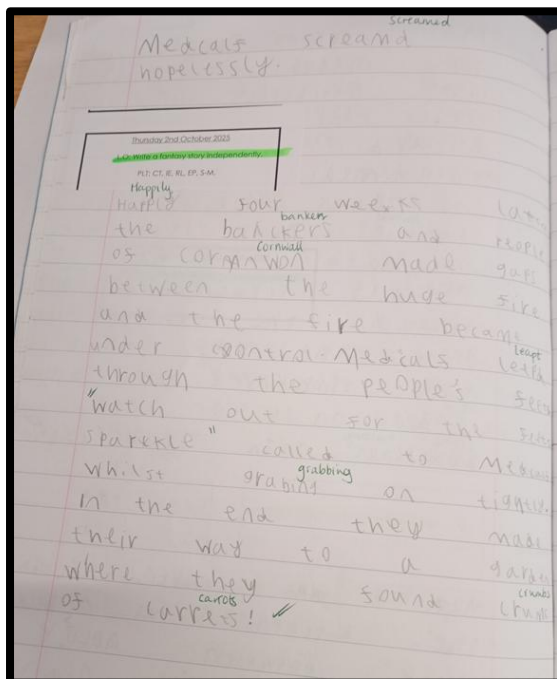 screamed
Medcals screamd
hopelessly.
Thursday 2nd October 2025
L.O: Write a fantasy story independently.
PLT: CT, IE, RL, EP, S-M.
Happily
Happid four weeks
bankers
the banckers and people
Cornwall
of cornnwon made gaps
between the huge fire
and the fire became
leapt
under control. Medicals
through the people's
"watch out for the
sparekle" called to
grabbing
whilst grabing on tightly.
In the end they made
their way to a
where they found
crumbs
carrots
of carrets! ✓